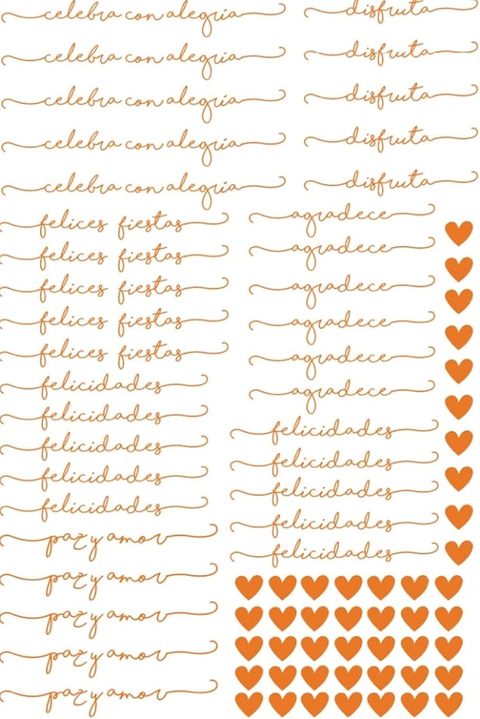 celebra con alegria
celebra con alegria
celebra con alegria
celebra con alegria
celebra con alegria
disfruta
disfruta
disfruta
disfruta
disfruta
felices fiestas
felices fiestas
felices fiestas
felices fiestas
felices fiestas
felicidades
felicidades
felicidades
felicidades
felicidades
paz y amor
paz y amor
paz y amor
paz y amor
paz y amor
agradece
agradece
agradece
agradece
agradece
agradece
felicidades
felicidades
felicidades
felicidades
felicidades